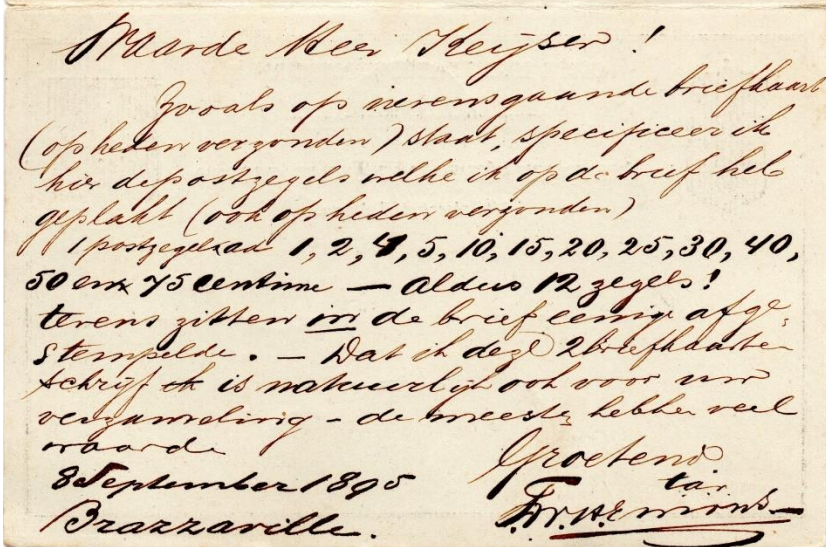 Waarde Heer Keyser!
Zooals op nevensgaande briefkaart
(op heden verzonden) staat, specificeer ik
hier de postzegels welke ik op de brief heb
geplakt (ook op heden verzonden)
1 postzegel ad 1, 2, 4, 5, 10, 15, 20, 25, 30, 40,
50 en 75 Centime — aldus 12 zegels!
tevens zitten in de brief eenige afge-
stempelde. — Dat ik deze 2 briefkaarten
schrijf is natuurlijk ook voor uw
verzameling — de meeste hebben veel
waarde
Groetend
8 September 1895
Brazzaville.